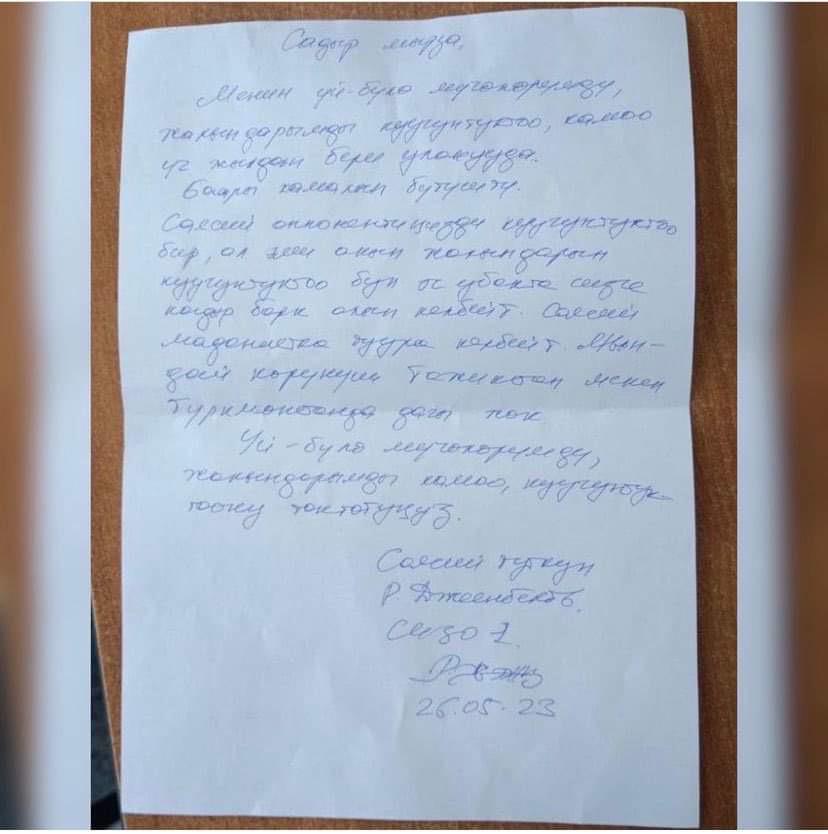 Садыр мырза,
Менин үй-бүлө мүчөлөрүмдү,
жакындарымды куугунтуктоо, камоо
үч жылдан бери уланууда.
Баары камалып бүтүптү.
Саясий оппонентиңизди куугунтуктоо
бир, ал эми анын жакындарын
куугунтуктоо бул эч убакта сизге
кадыр барк алып келбейт. Саясий
маданиятка туура келбейт. Мын-
дай көрүнүш Тажикстан менен
Туркмонстанда дагы жок
Үй-бүлө мүчөлөрүмдү,
жакындарымды камоо, куугунтук-
тоону токтотуңуз.
Саясий туткун
Р. Джеенбеков.
Сизо 1.
26.05.23